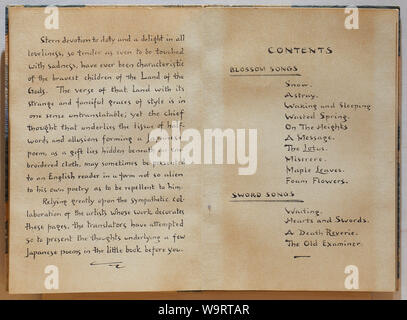 Stern devotion to duty and a delight in all
loveliness, so tender as even to be touched
with sadness, have ever been characteristic
of the bravest children of the Land of the
Gods. The verse of that Land with its
strange and fanciful graces of style is in
one sense untranslatable; yet the chief
thought that underlies the tissue of half-
words and allusions forming a Japanese
poem, as a gift lies hidden beneath an em-
broidered cloth, may sometimes be presented
to an English reader in a form not so alien
to his own poetry as to be repellent to him.
Relying greatly upon the sympathetic col-
laboration of the artists whose work decorates
these pages, the translators have attempted
so to present the thoughts underlying a few
Japanese poems in the little book before you.
CONTENTS
BLOSSOM SONGS
Snow.
Astray.
Waking and Sleeping
Wasted Spring.
On The Heights
A Message.
The Lotus.
Miserere.
Maple Leaves.
Foam Flowers.
SWORD SONGS
Waiting.
Hearts and Swords.
A Death Reverie.
The Old Examiner.
alamy
Image ID: W9RTAR
www.alamy.com